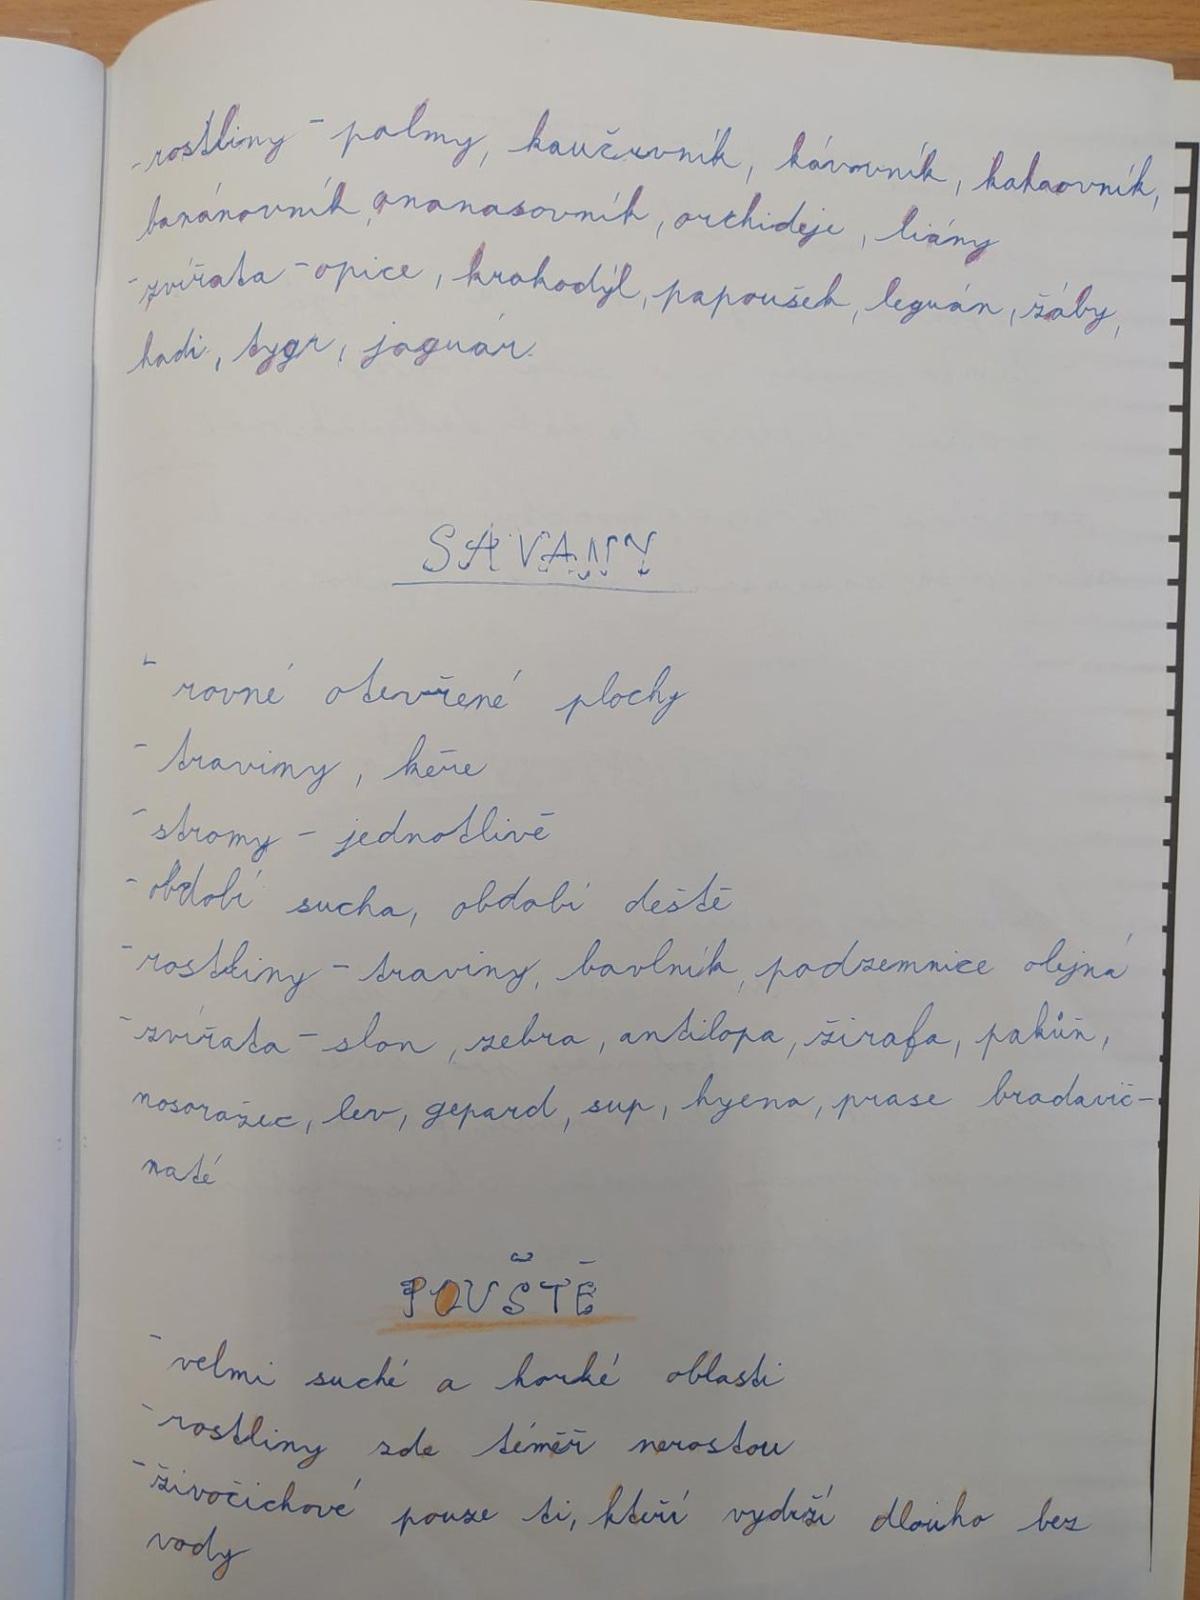 - rostliny - palmy, kaučuvník, kávovník, kakaovník,
banánovník, ananasovník, orchideje, liány
- zvířata - opice, krokodýl, papoušek, leguán, žáby,
hadi, tygr, jaguár.
SAVANY
- rovné otevřené plochy
- traviny, keře
- stromy - jednotlivě
- období sucha, období deště
- rostliny - traviny, bavlník, podzemnice olejná
- zvířata - slon, zebra, antilopa, žirafa, pakůň,
nosorožec, lev, gepard, sup, hyena, prase bradavič-
naté
POUŠTĚ
- velmi suché a horké oblasti
- rostliny zde téměř nerostou
- živočichové pouze ti, kteří vydrží dlouho bez
vody